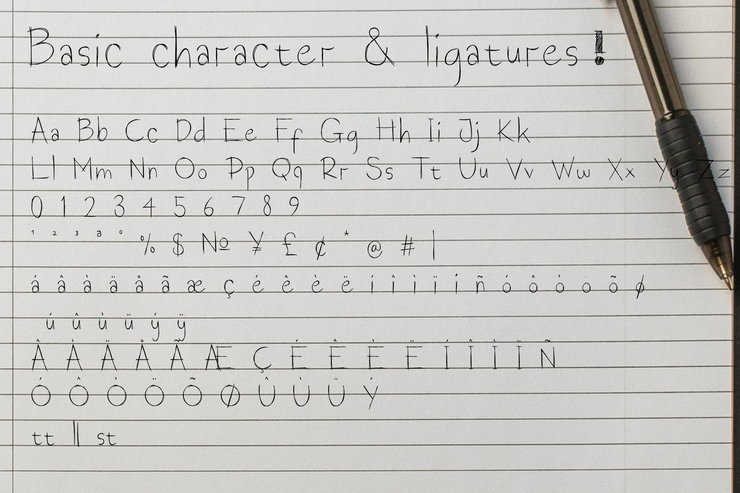 Basic character & ligatures!
Aa Bb Cc Dd Ee Ff Gg Hh Ii Jj Kk
Ll Mm Nn Oo Pp Qq Rr Ss Tt Uu Vv Ww Xx Yy Zz
0 1 2 3 4 5 6 7 8 9
¹ ² ³ ª º % $ № ¥ £ ¢ * @ # |
á â à ä å ã æ ç é ê è ë í î ì ï í ñ ó ô ò o õ ø
ú û ù ü ý ÿ
Â À Ä Å Ã Æ Ç É Ê È Ë Í Î Ì Ï Ñ
Ó Ô Ò Ö Õ Ø Û Ù Ü Ý
tt || st